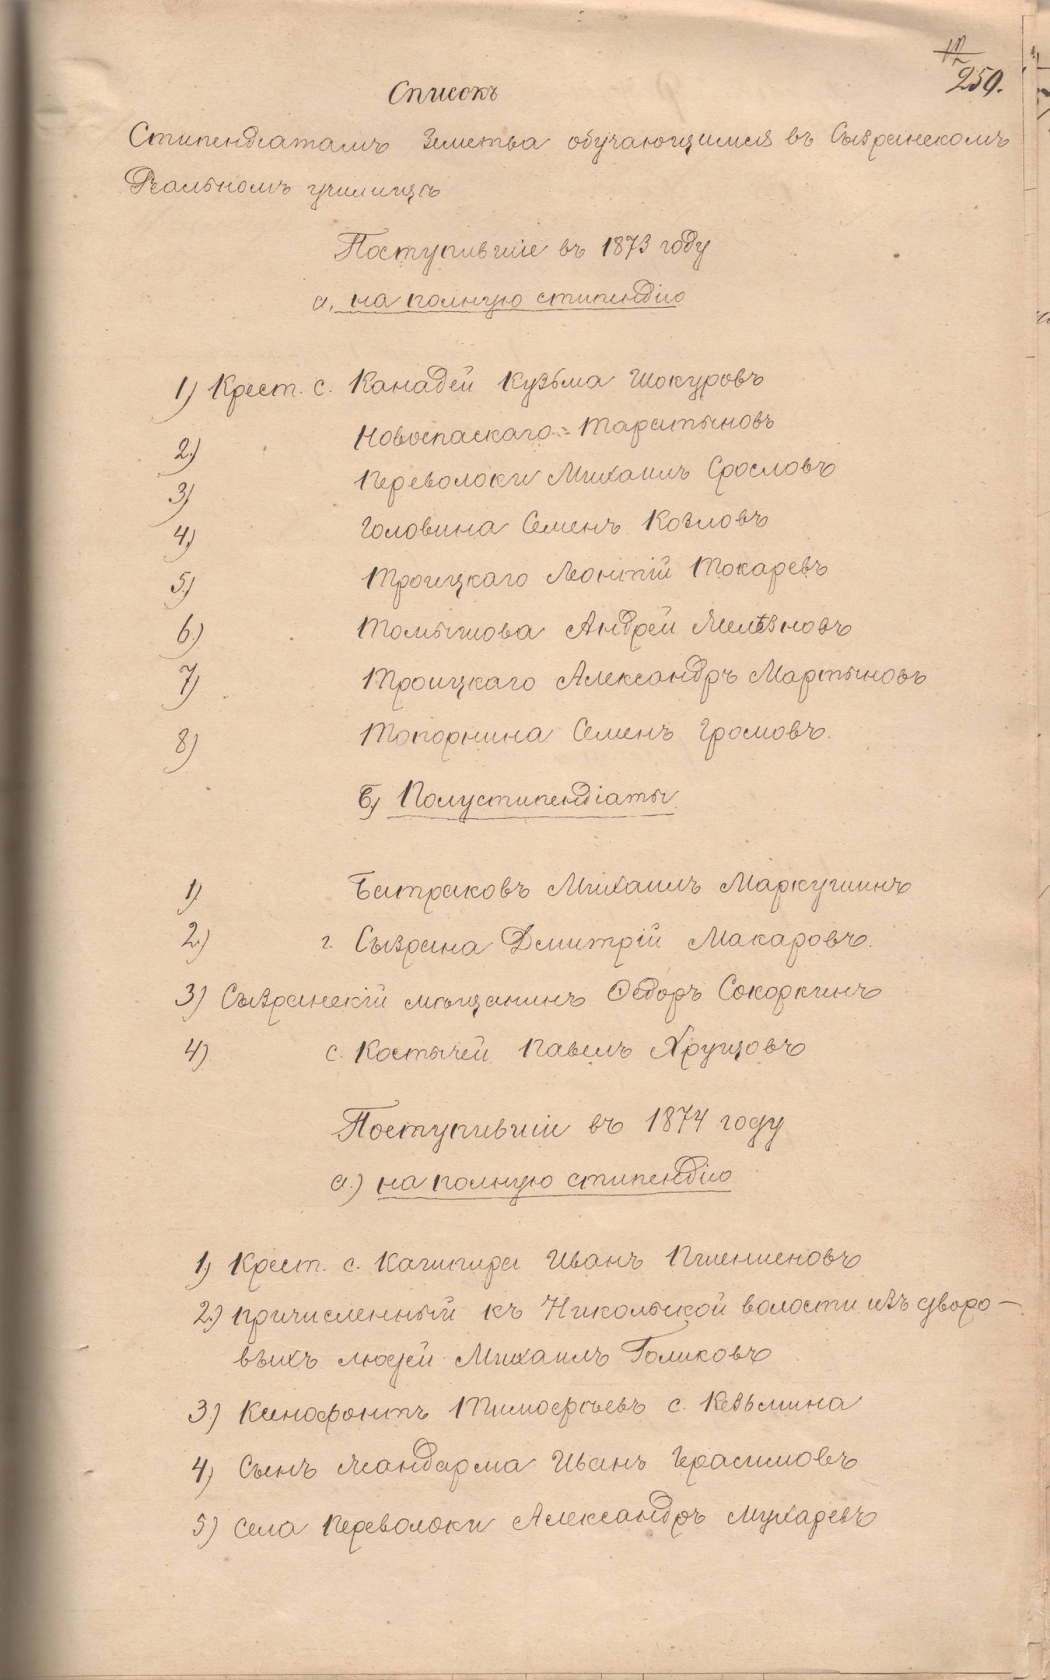 250.
Списокъ
Стипендіатамъ Земства обучающимся въ Сызранскомъ
Реальномъ училищѣ
Поступившіе въ 1873 году
а, на полную стипендію
1) Крест. с. Канадей Кузьма Шокуровъ
2) Новоспаскаго =
3) Переволоки Михаилъ Срословъ
4) Головина Семенъ Козловъ
5) Троицкаго Леонтій Токаревъ
6.) Томышова Андрей
7) Троицкаго Александръ Мартыновъ
8) Топорнина Семенъ Громовъ.
б) Полустипендіаты
1) Батраковъ Михаилъ Маркушинъ
2.) г. Сызрана Дмитрій Макаровъ.
3) Сызранскій мѣщанинъ Ѳедоръ Сокоркинъ
4) с. Костычей Павелъ Хрущовъ
Поступившіи въ 1874 году
а.) на полную стипендію
1) Крест. с. Кашпира Иванъ
2.) причисленный къ Никольской волости изъ дворо-
выхъ людей Михаилъ Голиковъ
3.) Ксинофонтъ Тимофѣевъ с. Кезьмина
4) Сынъ жандарма Иванъ Герасимовъ
5) села Переволоки Александръ Мухаревъ